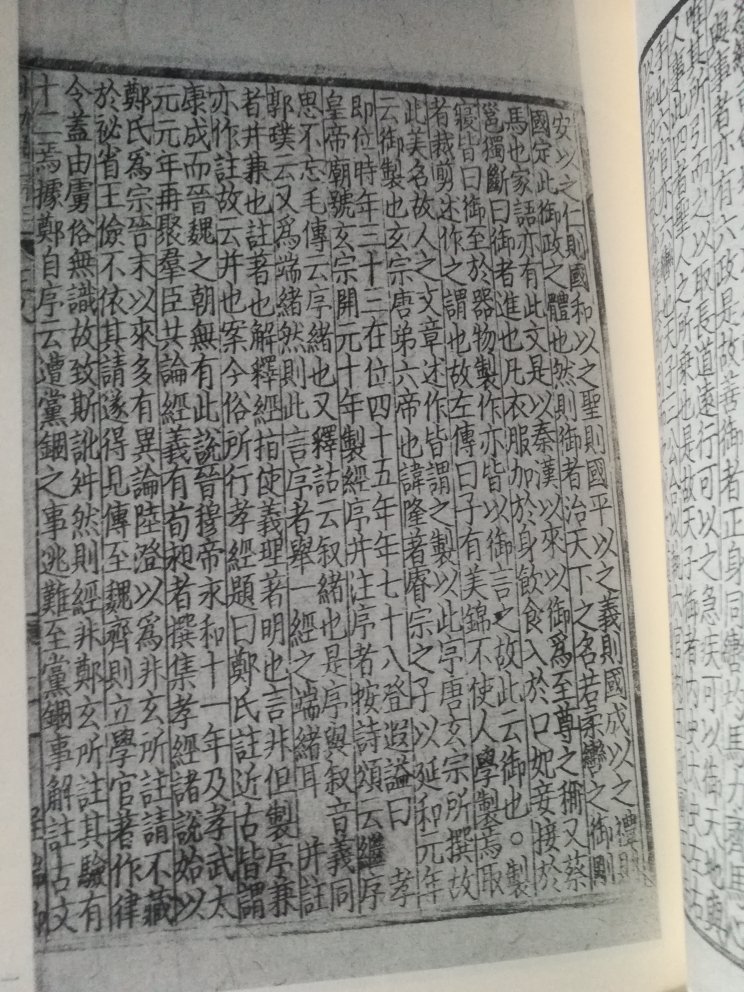 與事者亦有六政是故善御者正身同轡均馬力齊馬心
唯其所引而之以取長道遠行可以之急疾可以御天地與
人事此四者聖人之所乘也是故天子御者內史太史左右
安以之仁則國和以之聖則國平以之義則國成以之禮則
國定此御政之體也然則御者治天下之名若柔轡之御剛
馬也家語亦有此文是以秦漢以來以御爲至尊之稱又蔡
邕獨斷曰御者進也凡衣服加於身飲食入於口妃妾接於
寢皆曰御至於器物製作亦皆以御言之故此云御也。製
者裁剪述作之謂也故左傳曰子有美錦不使人學製焉取
此美名故人之文章述作皆謂之製以此序唐玄宗所撰故
云御製也玄宗唐弟六帝也諱隆基睿宗之子以延和元年
即位時年三十三在位四十五年年七十八登遐謚曰 孝
皇帝廟號玄宗開元十年製經序并注序者按詩頌云繼序
思不忘毛傳云序緒也又釋詁云叙緒也是序與叙音義同
郭璞云又爲端緒然則此言序者舉一經之端緒耳 并註
者并兼也註著也解釋經指使義理著明也言非但製序兼
亦作註故云并也案今俗所行孝經題曰鄭氏註近古皆謂
康成而晉魏之朝無有此說晉穆帝永和十一年及孝武太
元元年再聚羣臣共論經義有荀昶者撰集孝經諸說始以
鄭氏爲宗晉末以來多有異論陸澄以爲非玄所註請不藏
於祕省王儉不依其請遂得見傳至魏齊則立學官著作律
令蓋由虜俗無識故致斯訛舛然則經非鄭玄所註其驗有
十二焉據鄭自序云遭黨錮之事逃難至黨錮事解註古文